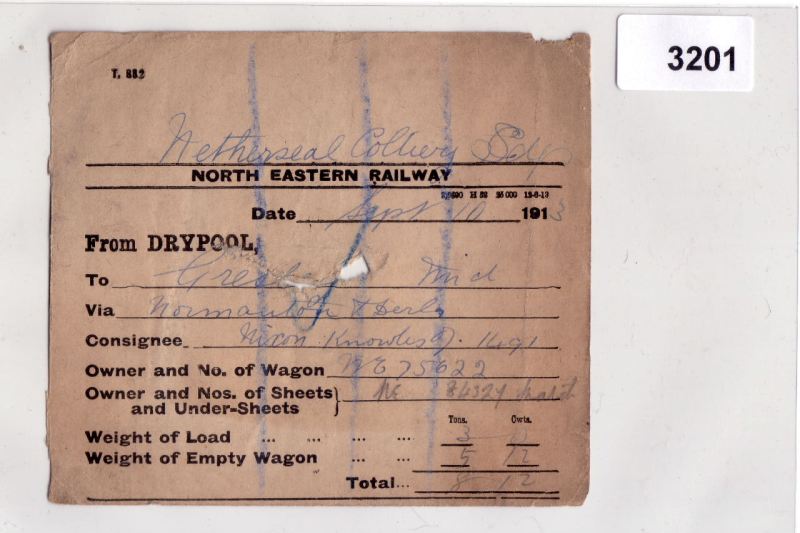 3201
T. 882
Netherseal Colliery Sdg
NORTH EASTERN RAILWAY
H 52 25 000 12-6-13
Date Sept 10 1913
From DRYPOOL,
To Gresley Mid
Via Normanton & Derby
Consignee Nixon Knowles
Owner and No. of Wagon NE 75622
Owner and Nos. of Sheets NE 84324
and Under-Sheets
Tons. Cwts.
Weight of Load ... ... ... ... 3 0
Weight of Empty Wagon ... ... 5 12
Total... 8 12